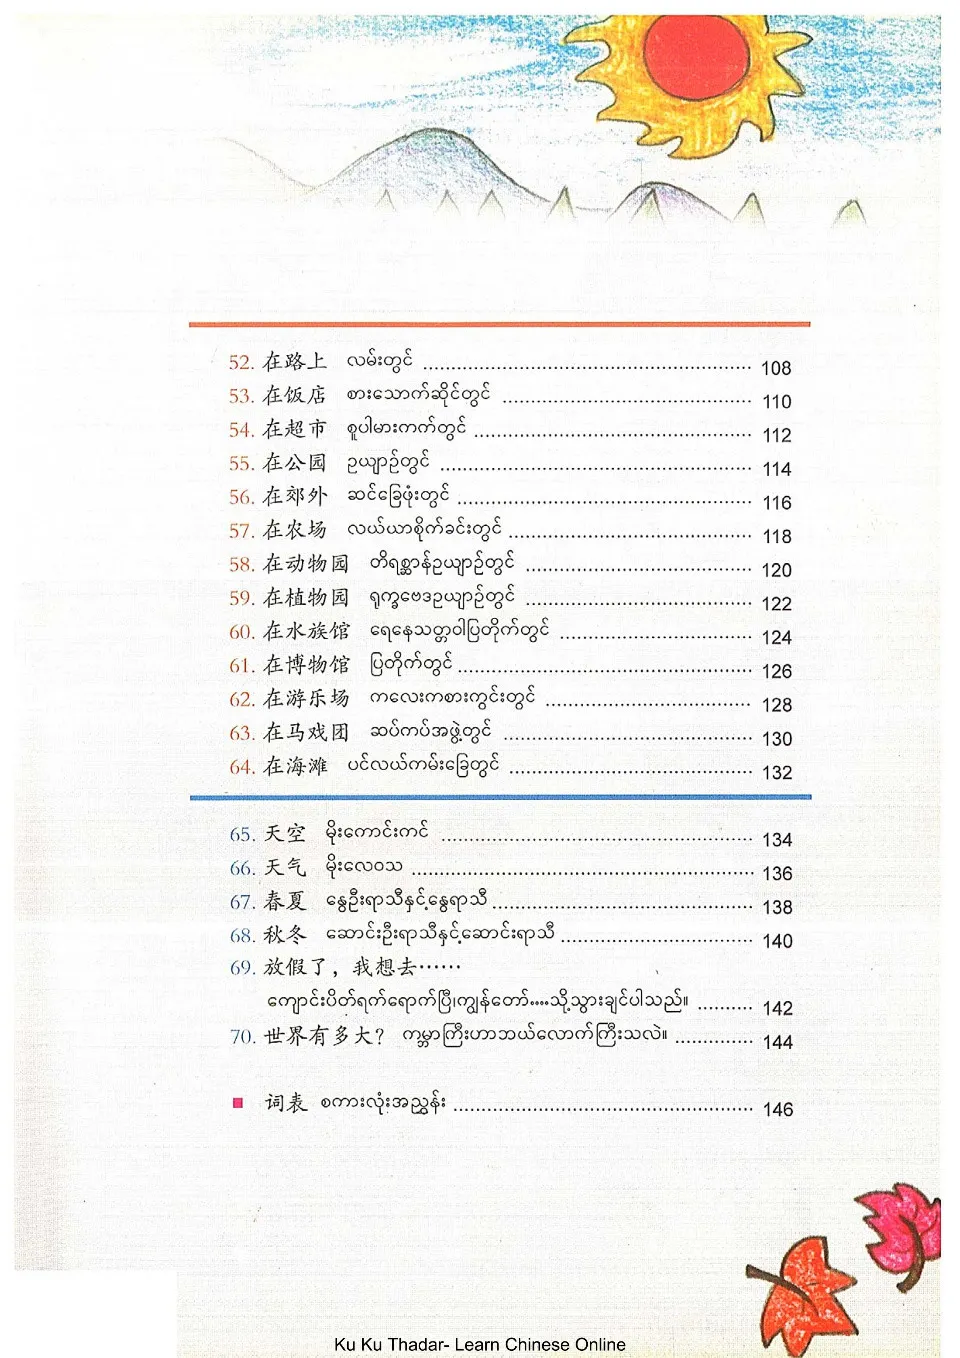 52. 在路上 လမ်းတွင် ............................................................ 108
53. 在饭店 စားသောက်ဆိုင်တွင် ............................................. 110
54. 在超市 စူပါမားကက်တွင် .................................................. 112
55. 在公园 ဥယျာဉ်တွင် ........................................................ 114
56. 在郊外 ဆင်ခြေဖုံးတွင် ..................................................... 116
57. 在农场 လယ်ယာစိုက်ခင်းတွင် ............................................ 118
58. 在动物园 တိရစ္ဆာန်ဥယျာဉ်တွင် ......................................... 120
59. 在植物园 ရုက္ခဗေဒဥယျာဉ်တွင် ......................................... 122
60. 在水族馆 ရေနေသတ္တဝါပြတိုက်တွင် ................................... 124
61. 在博物馆 ပြတိုက်တွင် ..................................................... 126
62. 在游乐场 ကလေးကစားကွင်းတွင် ..................................... 128
63. 在马戏团 ဆပ်ကပ်အဖွဲ့တွင် ............................................. 130
64. 在海滩 ပင်လယ်ကမ်းခြေတွင် ............................................ 132
65. 天空 မိုးကောင်းကင် ........................................................ 134
66. 天气 မိုးလေဝသ .............................................................. 136
67. 春夏 နွေဦးရာသီနှင့်နွေရာသီ ............................................... 138
68. 秋冬 ဆောင်းဦးရာသီနှင့်ဆောင်းရာသီ ................................... 140
69. 放假了，我想去……
ကျောင်းပိတ်ရက်ရောက်ပြီ၊ကျွန်တော်....သို့သွားချင်ပါသည်။ .......... 142
70. 世界有多大? ကမ္ဘာကြီးဟာဘယ်လောက်ကြီးသလဲ။ .............. 144
■ 词表 စကားလုံးအညွှန်း ...................................................... 146
Ku Ku Thadar- Learn Chinese Online